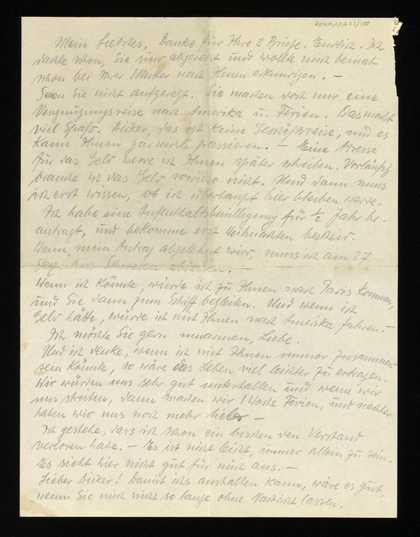 Mein Liebstes, Danke für Ihre 2 Briefe. Endlich. Ich
dachte schon, Sie sind abgereist und wollte mich beinah
schon bei nach Ihnen erkundigen. –
Seien Sie nicht aufgeregt. Sie machen dort nur eine
Vergnügungsreise nach Amerika u. Ferien. Das macht
viel Spaß. Sicher, das ist keine und es
kann Ihnen ja nichts passieren. – Eine Adresse
für das Geld werde ich Ihnen später schreiben. Vorläufig
brauche ich das Geld sowieso nicht. Und dann muss
ich erst wissen, ob ich überhaupt hier bleiben werde.
Ich habe eine Aufenthaltsbewilligung für ½ Jahr be-
antragt, und bekomme erst Weihnachten Bescheid.
Wenn mein Antrag abgelehnt wird, muss ich am 27
Wenn ich könnte, würde ich zu Ihnen nach Paris kommen,
und Sie dann zum Schiff begleiten. Und wenn ich
Geld hätte, würde ich mit Ihnen nach Amerika fahren. –
Ich möchte Sie gern umarmen, Liebe.
Und ich denke, wenn ich mit Ihnen immer zusammen-
sein könnte, so wäre das Leben viel leichter zu ertragen.
Wir würden uns sehr gut unterhalten und wenn wir
uns streiten, dann machen wir 1 Woche Ferien, und nachher
haben wir uns noch mehr lieber –
Ich gestehe, dass ich schon ein bisschen den Verstand
verloren habe. – Es ist nicht leicht, immer allein zu sein.
Es sieht hier nicht gut für mich aus. –
Lieber Damit ichs aushalten kann, wäre es gut,
wenn Sie mich nicht so lange ohne Nachricht lassen.